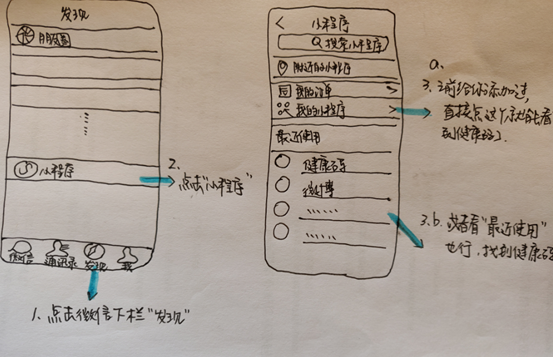 发现
朋友圈
小程序
微信 通讯录 发现 我
2.
点击"小程序"
1、点击微信下栏"发现"
< 小程序
搜索小程序
附近的小程序
我的订单 >
我的小程序 >
最近使用
健康码
a.
3. 之前给你添加过,
直接点这个就能看
到健康码了.
3.b. 或者看"最近使用"
也行,找到健康码